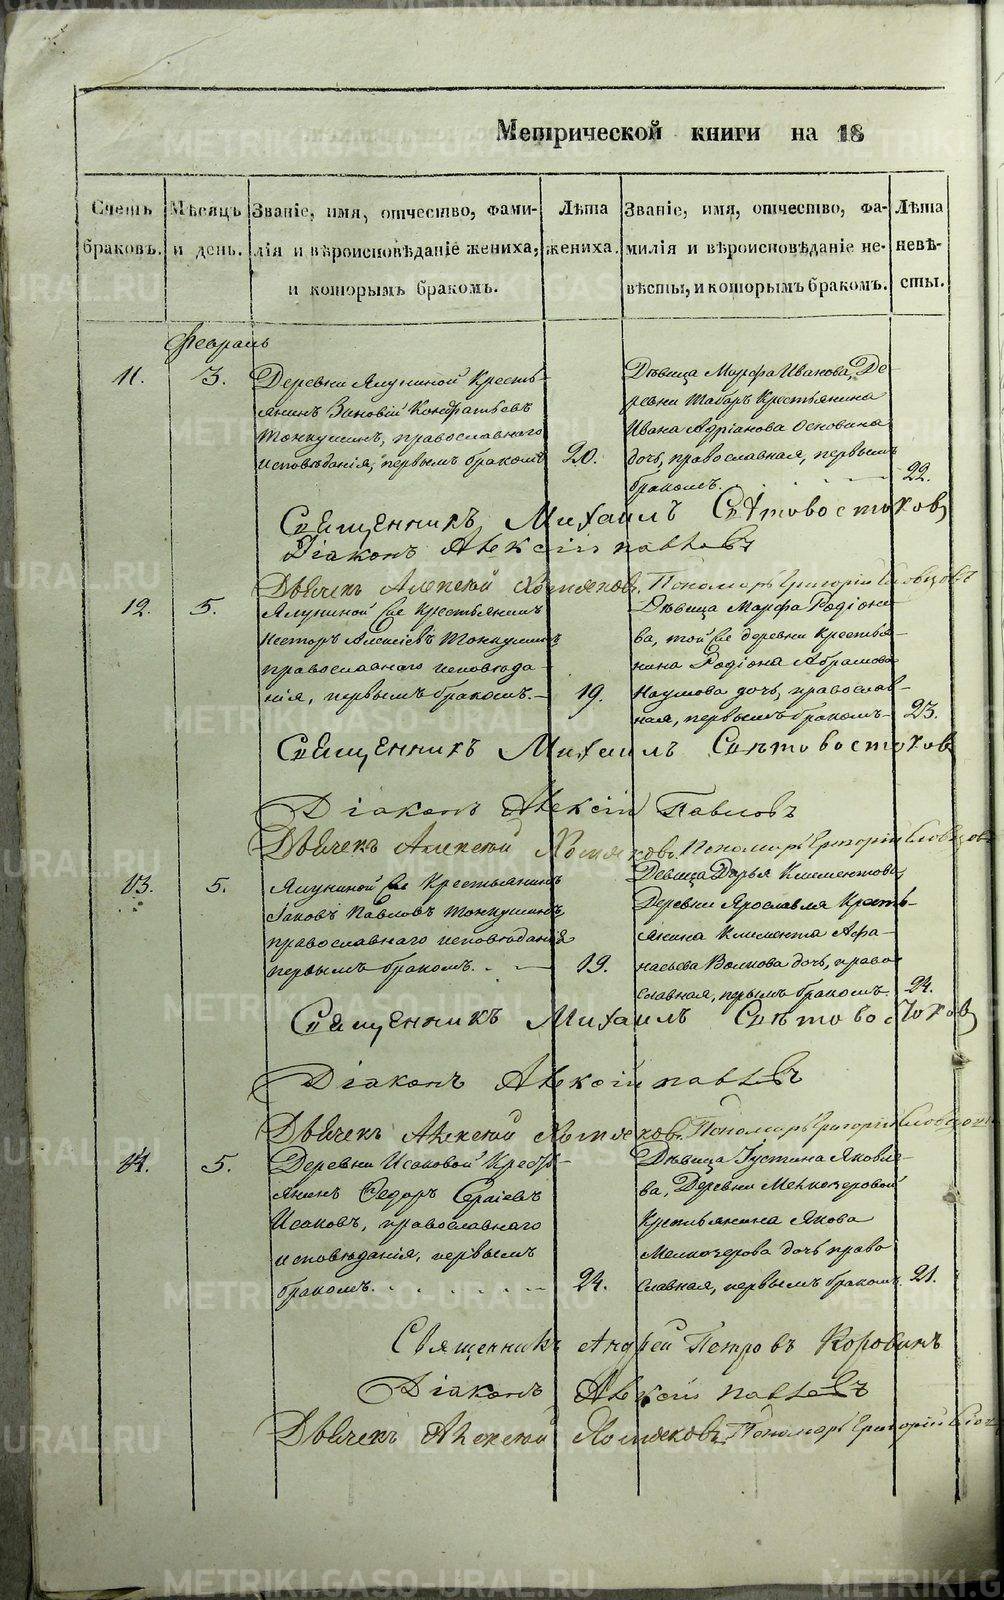 Метрической книги на 18
Счетъ браковъ.
Мѣсяцъ и день.
Званіе, имя, отчество, фами-
лія и вѣроисповѣданіе жениха,
и которымъ бракомъ.
Лѣта жениха.
Званіе, имя, отчество, фа-
милія и вѣроисповѣданіе не-
вѣсты, и которымъ бракомъ.
Лѣта невѣ-
сты.
Февраль
11.
3.
Деревни Ялуниной кресть-
янинъ Зиновій Кондратьевъ
Тонкушинъ, православнаго
исповѣданія, первымъ бракомъ
20.
Дѣвица Марфа Иванова, Де-
ревни Табаръ Крестьянина
Ивана Адріанова Основина
дочь, православная, первымъ
бракомъ.
22.
Священникъ Михаилъ Свѣтовостоковъ
Діаконъ Алексій Павловъ
Дьячекъ Алексѣй Хомяковъ. Пономарь Григорій Словцовъ
12.
5.
Ялуниной же крестьянинъ
Несторъ Алексіевъ Тонкушинъ
православнаго исповѣда-
нія, первымъ бракомъ.
19.
Дѣвица Марфа Родіоно-
ва, той же деревни Крестья-
нина Родіона Абрамова
Наумова дочь, православ-
ная, первымъ бракомъ
23.
Священникъ Михаилъ Свѣтовостоковъ
Діаконъ Алексій Павловъ
Дьячекъ Алексѣй Хомяковъ. Пономарь Григорій Словцовъ
13.
5.
Ялуниной же Крестьянинъ
Іаковъ Павловъ Тонкушинъ
православнаго исповѣданія
первымъ бракомъ.
19.
Дѣвица Дарья Климентова,
Деревни Ярославля Кресть-
янина Климента Афа-
насьева Волкова дочь, право-
славная, первымъ бракомъ.
24.
Священникъ Михаилъ Свѣтовостоковъ
Діаконъ Алексій Павловъ
Дьячекъ Алексѣй Хомяковъ. Пономарь Григорій Словцовъ
14.
5.
Деревни Исаковой Кресть-
янинъ Ѳедоръ Сергіевъ
Исаковъ, православнаго
исповѣданія, первымъ
бракомъ.
24.
Дѣвица Іустина Яковле-
ва, Деревни Мелкозеровой
Крестьянина Якова
Мелкозерова дочь право
славная, первымъ бракомъ.
21.
Священникъ Андрей Петровъ Коровинъ
Діаконъ Алексій Павловъ
Дьячекъ Алексѣй Хомяковъ. Пономарь Григорій
METRIKI.GASO-URAL.RU